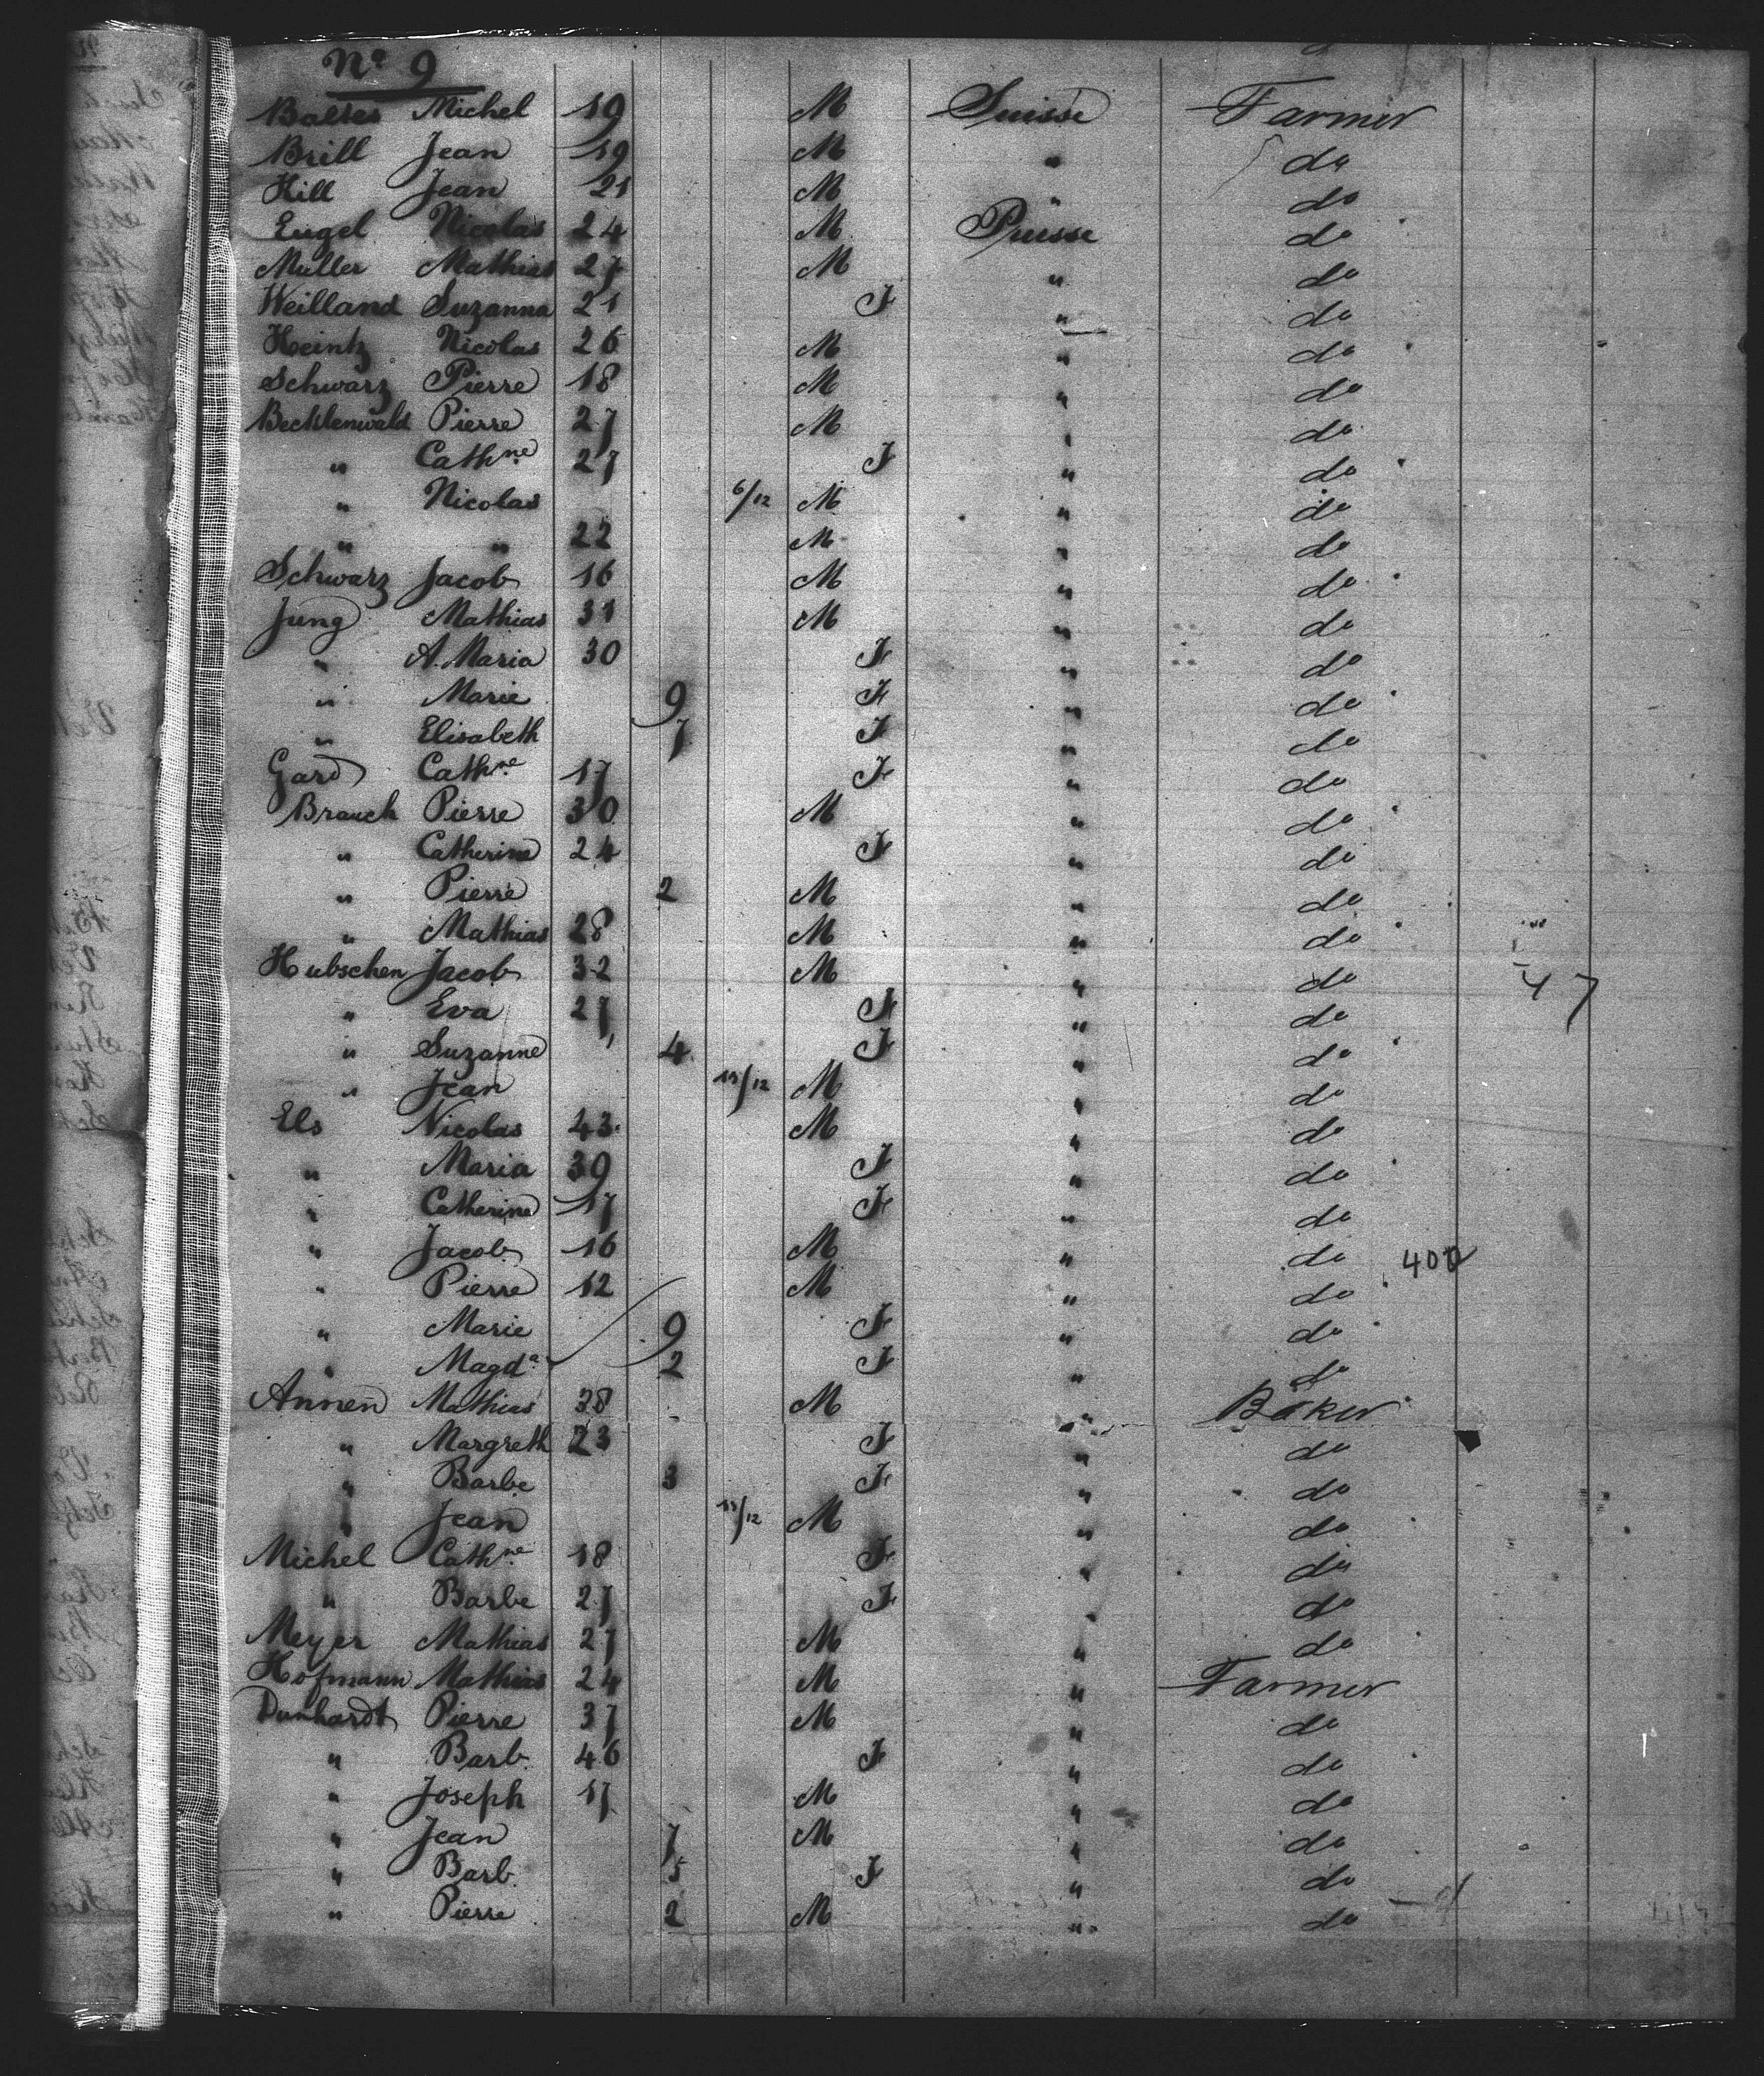 No 9
Balles Michel 19 M Suisse Farmer
Brill Jean 19 M " do
Hill Jean 21 M " do
Engel Nicolas 24 M Prusse do
Muller Mathias 27 M " do
Weilland Suzanna 21 F " do
Heintz Nicolas 26 M " do
Schwarz Pierre 18 M " do
Bechlenwald Pierre 27 M " do
" Cathne 27 F " do
" Nicolas 6/12 M " do
" " 22 M " do
Schwarz Jacob 16 M " do
Jung Mathias 31 M " do
" A. Maria 30 F " do
" Marie 9 F " do
" Elisabeth 7 F " do
Gard Cathne 17 F " do
Brauch Pierre 30 M " do
" Catherine 24 F " do
" Pierre 2 M " do
" Mathias 28 M " do
Hubschen Jacob 32 M " do 47
" Eva 27 F " do
" Suzanne 4 F " do
" Jean 11/12 M " do
Els Nicolas 43 M " do
" Maria 39 F " do
" Catherine 17 F " do
" Jacob 16 M " do 400
" Pierre 12 M " do
" Marie 9 F " do
" Magda 2 F " do
Annen Mathias 38 M " Baker
" Margreth 23 F " do
" Barbe 3 F " do
" Jean 11/12 M " do
Michel Cathne 18 F " do
" Barbe 27 F " do
Meyer Mathias 27 M " do
Hofmann Mathias 24 M " Farmer
Dunhardt Pierre 37 M " do
" Barb. 46 F " do
" Joseph 17 M " do
" Jean 7 M " do
" Barb. 5 F " do
" Pierre 2 M " do